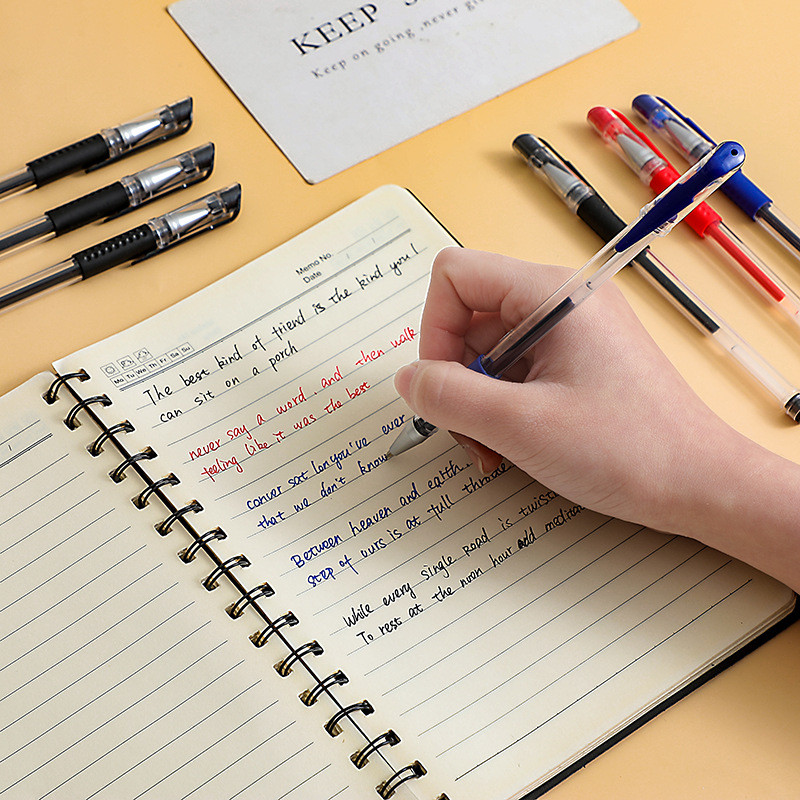 KEEP
Keep on going never
Memo No.
Date / /
Mo Tu We Th Fr Sa Su
The best kind of friend is the kind you
can sit on a porch
never say a word, and then walk
feeling like it was the best
conver sat lon you've ever
that we don't know
Between heaven and earth.
step of ours is at full throttle
While every single Road is twist
To rest at the noon hour Add medita